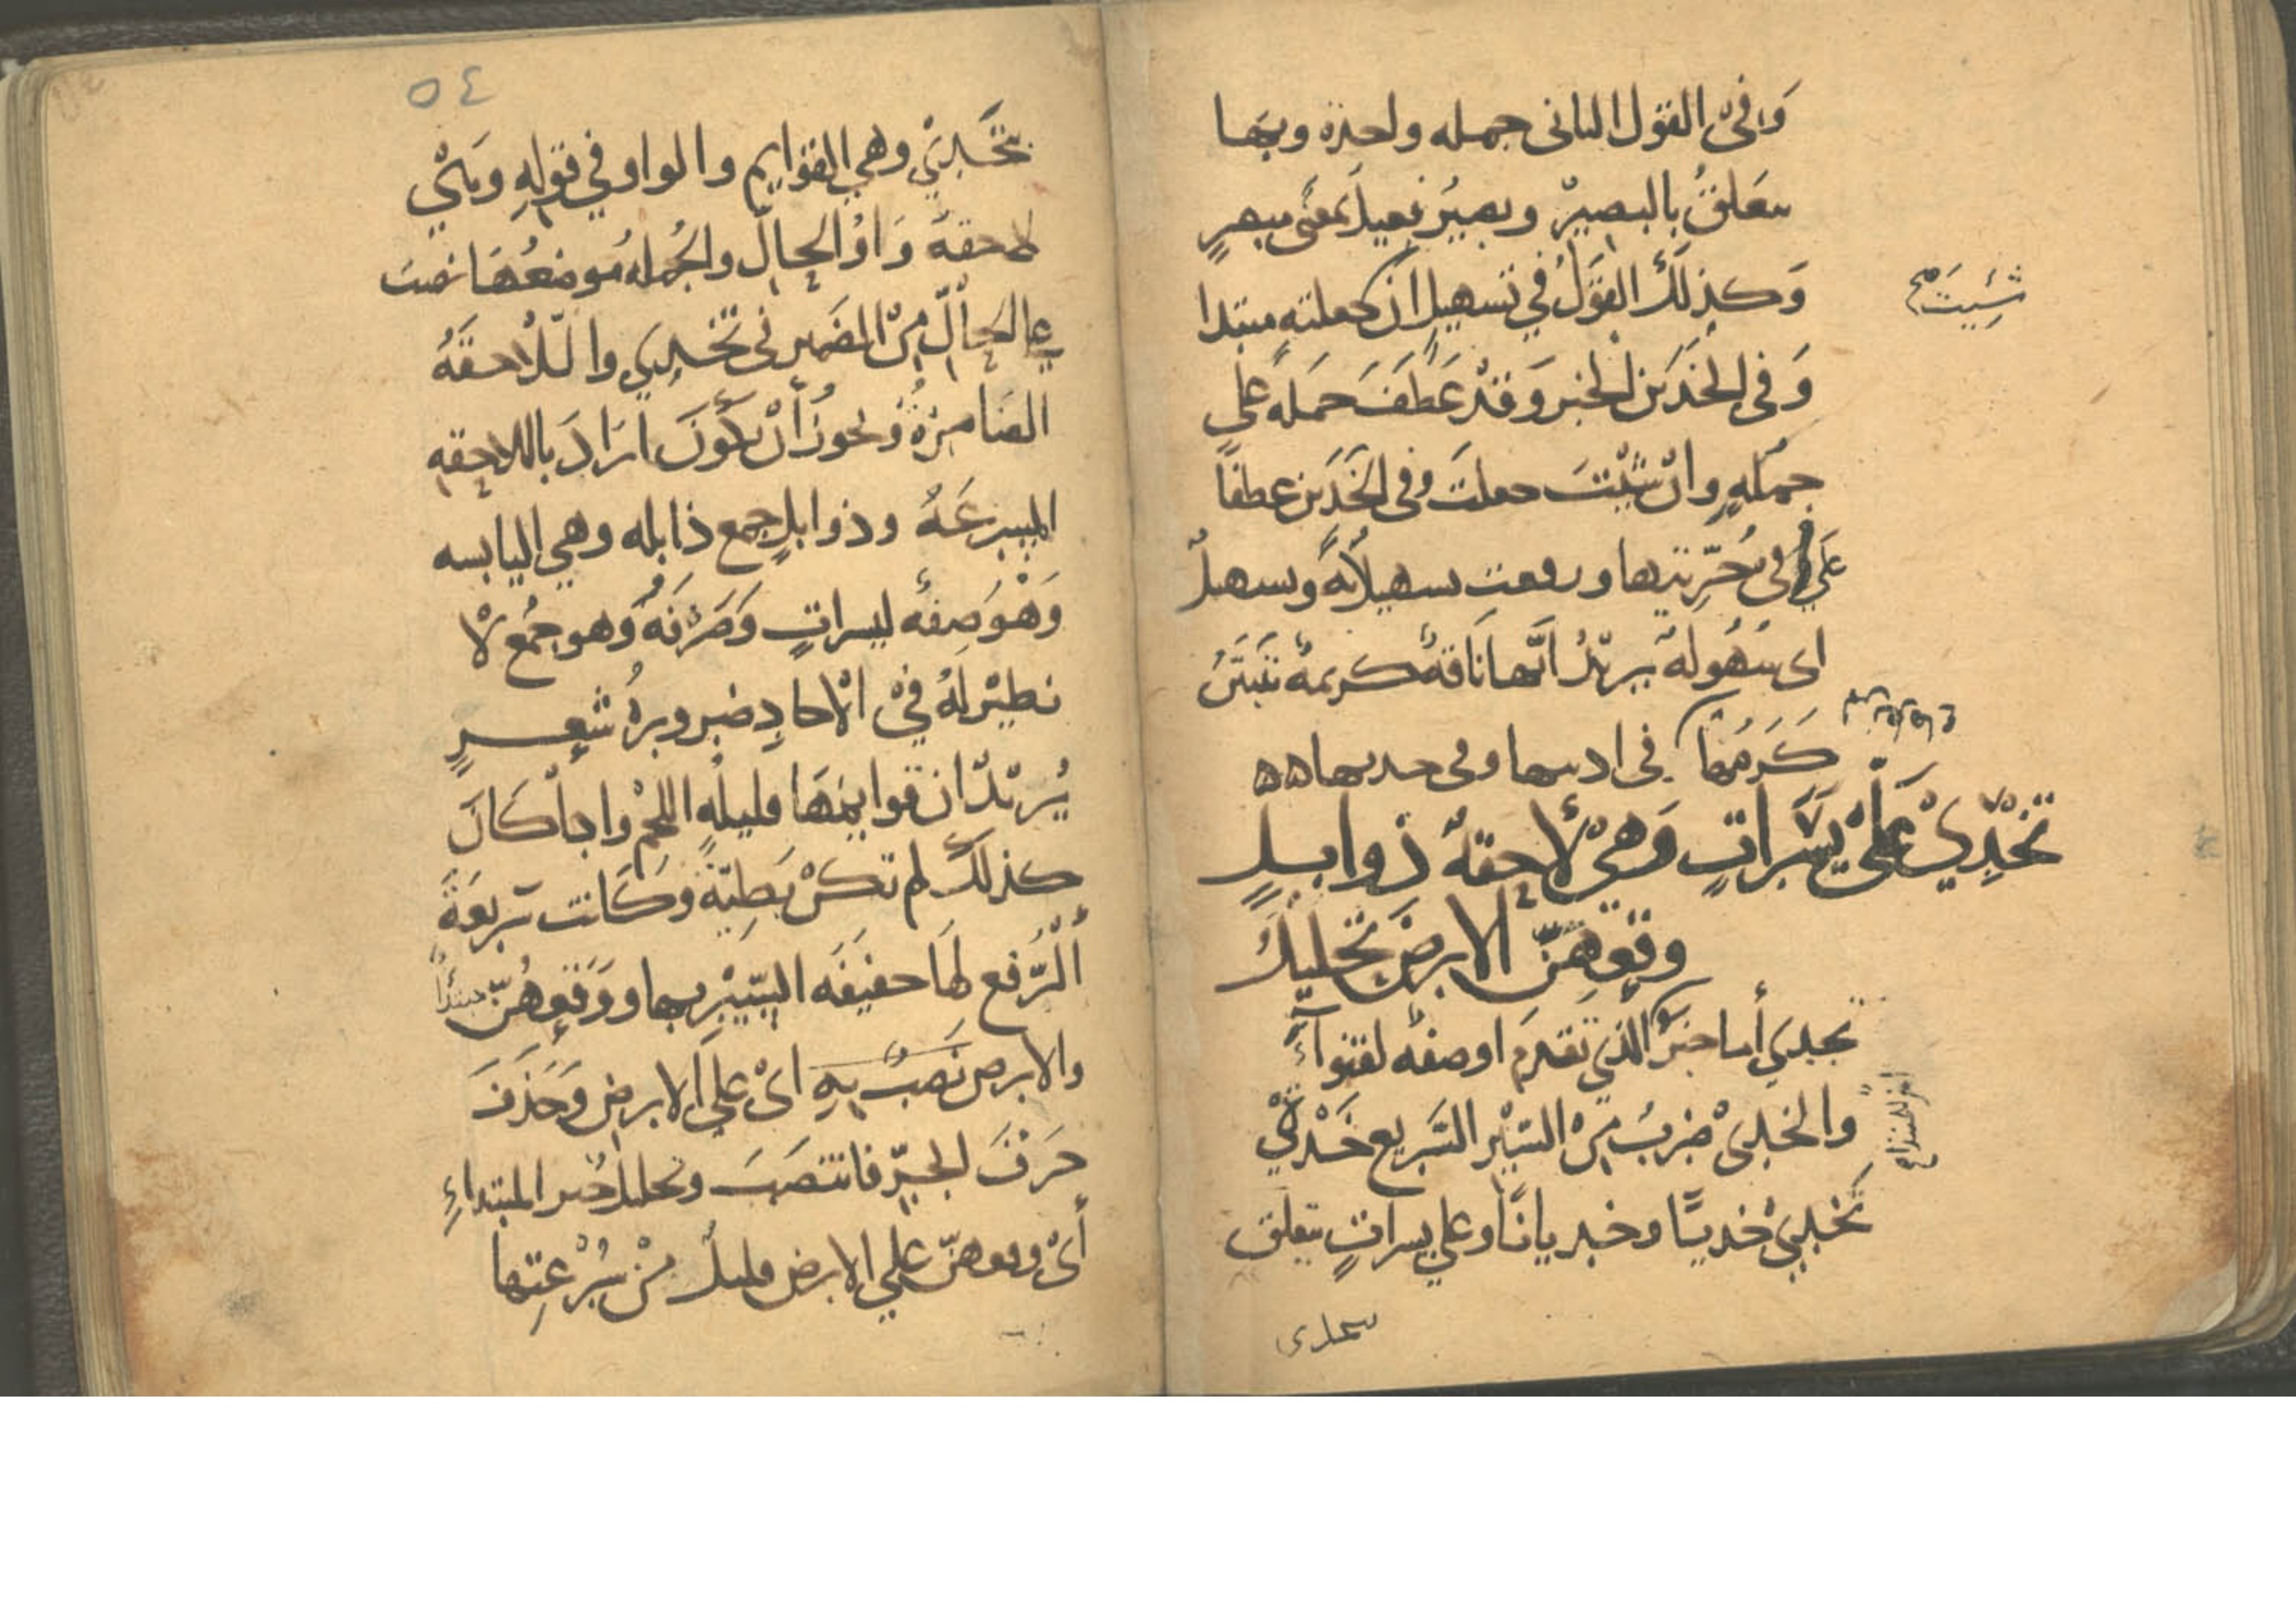 وَفِي القول الثاني جمله واحدة وبها
يتعلق بالبصير وبصيرُ فعيل بمعنى مبصرٍ
وَكذلك القول في تسهيل ان جعلته مبتدا
وَفي الخدين الخبر وَقد عَطَفَ جمله على
جملهٍ وان شئتَ جعلت وفى الخَدين عطفاً
علي في حُرّتيها ورفعت تسهيلا به وتسهيل
اى سُهُولة يريد انّها ناقة كريمة تبين
كَرمُها في اذنيها وفى خديها هه
شئيت صح
تخْدِيْ عَلَىْ يسَراتٍ وَهِيْ لاحقةٌ ذوابلٍ
وقعهنّ الارض تحليل
تخدي أما خبر الذي تقدم اوصفه لقنواء
والخدى ضربُ مِن السَيْر السَريع خَدْي
تخدي خديا وخديانا وعلي يسراتٍ يتعلق
٥٤
بتخدي وهي القوايم والواو في قولِهِ وَهْي
لاحقة وَاوُ الحال والجُمله موضعُهَا نصبَ
علي الحال مِن المضمر فى تخدي واللاحقَهُ
الضامرةُ ويجوزُ أنْ يكونَ ارَادَ باللاحقه
المسرعَة وذوابل جمع ذابله وهي اليابسه
وَهْوَ صِفهُ ليسراتٍ وَصَرفَهُ وَهو جمُع لا
نظيْر لهُ فيْ الاحادِ ضرورة شعرٍ
يُريدُ ان قوايمَهَا قليلهٍ اللحْمْ واذا كانَ
كذلك لم تكن بَطِيّة وَكَانت سَريعَةَ
اَلرَّفع لهَا خفيفَه السَّيْرِ بها ووَقعهُنّ مبتدأ
والارض نَصبُ بِهِ اىْ علي الارض وَحَذفَ
حَرْفَ الجرّ فانتصَبَ وتحليل خبر المبتداءِ
أىْ وقعهنّ علي الارض قليلُ مْن سُرْعتِها